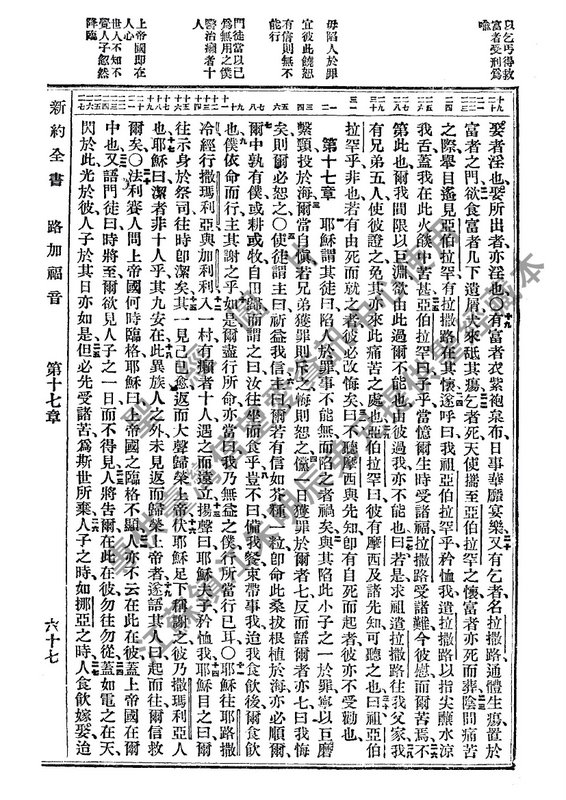 以乞丐得救
富者受刑爲
喻
毋陷人於罪
宜彼此饒恕
有信則無能不
門徒當以己
爲無用之僕
醫治癩者十
人
上帝國卽在
人心
世人不知不
覺人子忽然
降臨
娶者淫也娶所出者亦淫也〇有富者衣紫袍枲布日事華靡宴樂又有乞者名拉撒路通體生瘍置於
富者之門欲食富者几下遺屑犬來䑛其瘍乞者死天使攜至亞伯拉罕之懷富者亦死而葬陰間痛苦
之際舉目遙見亞伯拉罕有拉撒路在其懷遂呼曰我祖亞伯拉罕乎矜恤我遣拉撒路以指尖蘸水涼
我舌蓋我在此火燄中苦甚亞伯拉罕曰子乎當憶爾生時受諸福拉撒路受諸難今彼慰而爾苦焉不
第此也爾我間限以巨淵欲由此過爾不能也由彼過我亦不能也曰若是求祖遣拉撒路往我父家我
有兄弟五人使彼證之免其亦來此痛苦之處也亞伯拉罕曰彼有摩西及諸先知可聽之也曰祖亞伯
拉罕乎非也若有由死而就之者彼必改悔矣曰不聽摩西與先知卽有自死而起者彼亦不受勸也
第十七章 耶穌謂其徒曰陷人於罪事不能無而陷之者禍矣與其陷此小子之一於罪寧以巨磨
繫頸投於海爾當自愼若兄弟獲罪則斥之悔則恕之儻一日獲罪於爾者七反而語爾者亦七曰我悔
矣則爾必恕之〇使徒謂主曰祈益我信主曰爾若有信如芥種一粒卽命此桑拔根植於海亦必順爾
爾中孰有僕或耕或牧自田歸而謂之曰汝往坐而食乎豈不曰備我餐束帶事我迨我食飲後爾食飲
也僕依命而行主其謝之乎如是爾盡行所命亦當曰我乃無益之僕所當行已耳〇耶穌往耶路撒
冷經行撒瑪利亞與加利利入一村有癩者十人遇之而遠立揚聲曰耶穌夫子矜恤我耶穌目之曰爾
往示身於祭司往時卽潔矣其一見己已愈返而大聲歸榮上帝伏耶穌足下稱謝之彼乃撒瑪利亞人
也耶穌曰潔者非十人乎其九安在此異族人之外未見返而歸榮上帝者遂語其人曰起而往爾信救
爾矣〇法利賽人問上帝國何時臨格耶穌曰上帝國之臨格不顯人亦不云在此在彼蓋上帝國在爾
中也又語門徒曰時將至爾欲見人子之一日而不得見人將告爾在此在彼勿往勿從蓋如電之在天
閃於此光於彼人子於其日亦如是但必先受諸苦爲斯世所棄人子之時如挪亞之時人食飲嫁娶迨
新約全書 路加福音 第十七章 六十七